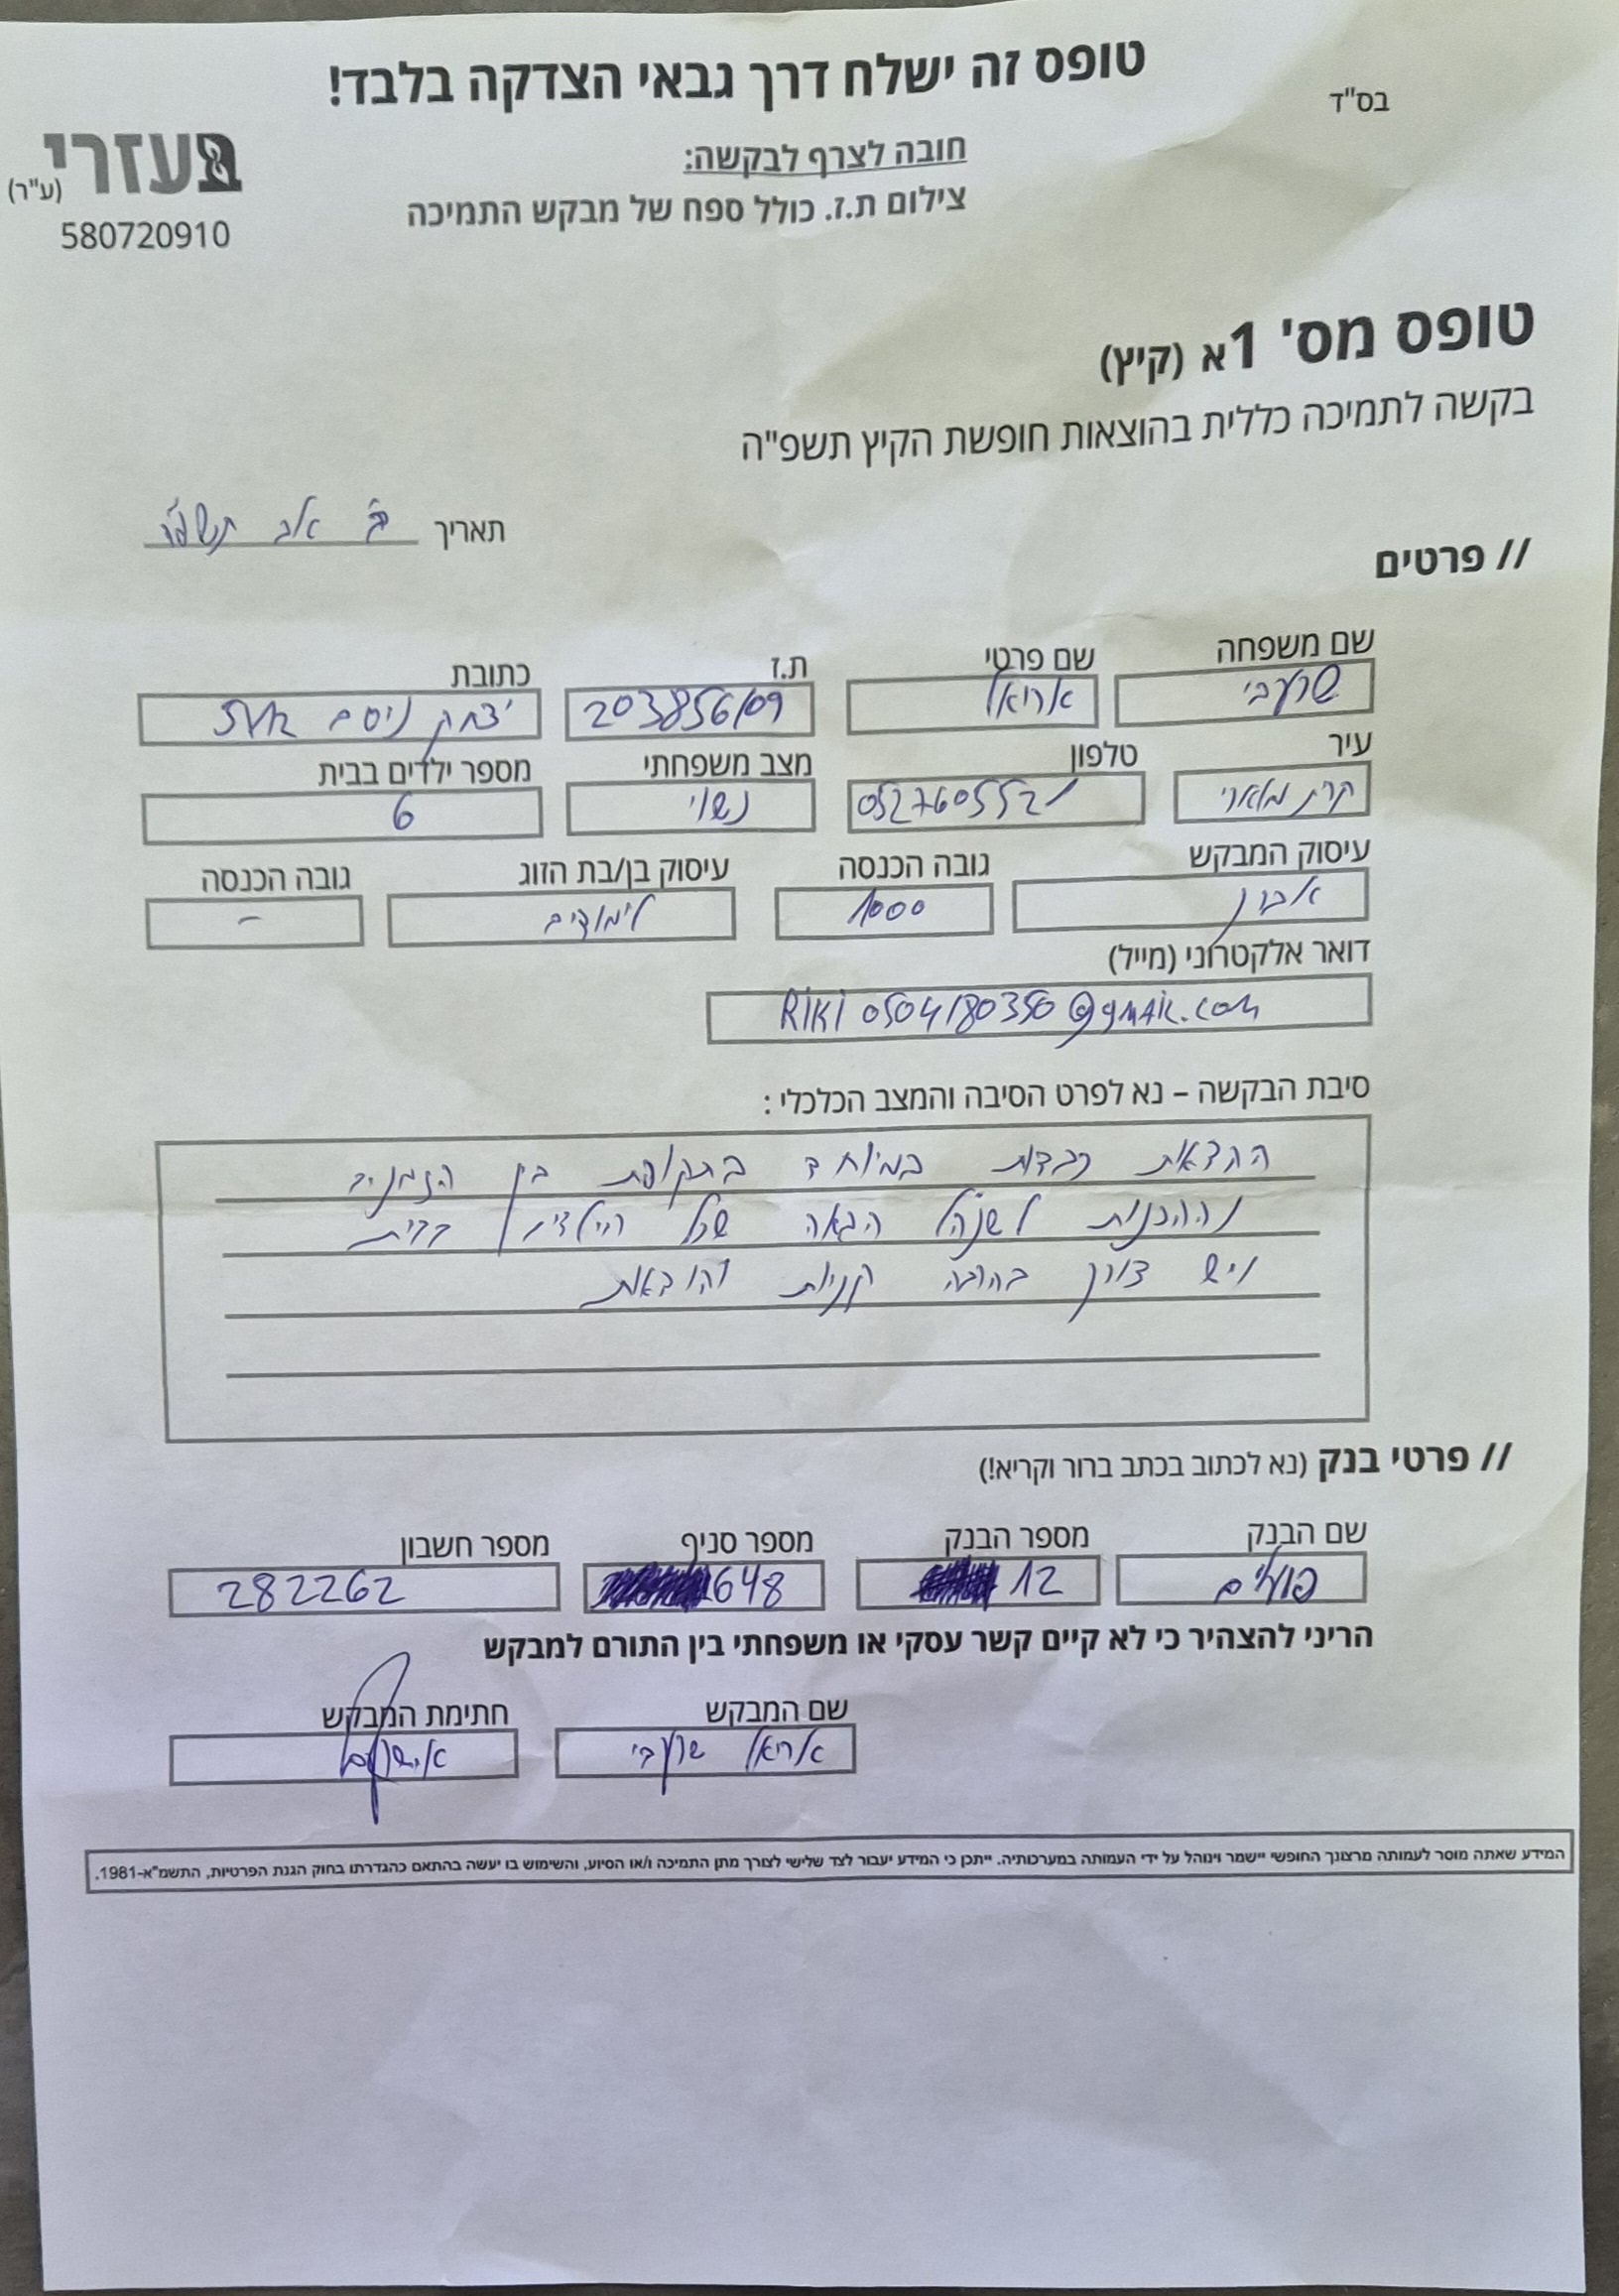 בס"ד
טופס זה ישלח דרך גבאי הצדקה בלבד!
חובה לצרף לבקשה:
צילום ת.ז. כולל ספח של מבקש התמיכה
בעזרי (ע"ר)
580720910
טופס מס' 1א (קיץ)
בקשה לתמיכה כללית בהוצאות חופשת הקיץ תשפ"ה
תאריך ב' אב
// פרטים
שם משפחה שם פרטי ת.ז כתובת
שרעבי אריאל 203856109 יצחק ניסים
עיר טלפון מצב משפחתי מספר ילדים בבית
0527605521 נשוי 6
עיסוק המבקש גובה הכנסה עיסוק בן/בת הזוג גובה הכנסה
אברך 1000 לימודים -
דואר אלקטרוני (מייל)
RIKI 0504180350@gmail.com
סיבת הבקשה – נא לפרט הסיבה והמצב הכלכלי :
הוצאות כבדות במיוחד בתקופת בין הזמנים
וההכנות לשנה"ל הבאה שכל הילדים בבית
ויש צורך בהרבה קניות והוצאות
// פרטי בנק (נא לכתוב בכתב ברור וקריא!)
שם הבנק מספר הבנק מספר סניף מספר חשבון
פועלים 12 648 282262
הריני להצהיר כי לא קיים קשר עסקי או משפחתי בין התורם למבקש
שם המבקש חתימת המבקש
אריאל שרעבי
המידע שאתה מוסר לעמותה מרצונך החופשי יישמר וינוהל על ידי העמותה במערכותיה. ייתכן כי המידע יעבור לצד שלישי לצורך מתן התמיכה ו/או הסיוע, והשימוש בו יעשה בהתאם כהגדרתו בחוק הגנת הפרטיות, התשמ"א-1981.